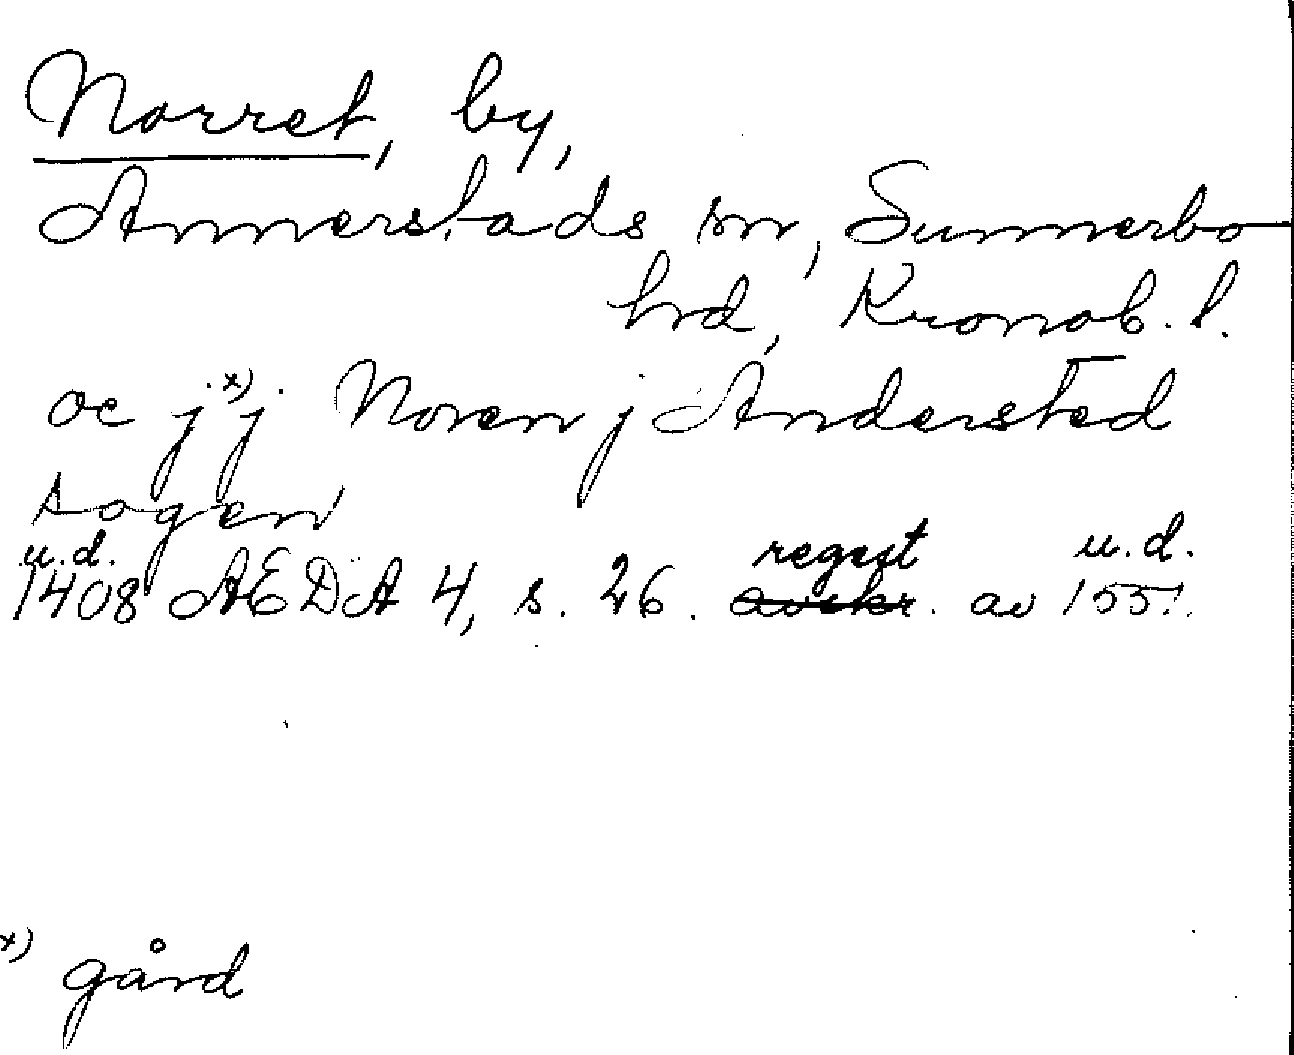 Norret, by,
Annerstads sn, Sunnerbo
hrd, Kronob. l.
oc j x) j Noren j Andersted
sogen
u.d. regest u.d.
1408 AEDA 4, s. 26. avskr. av 1551.
x) gård